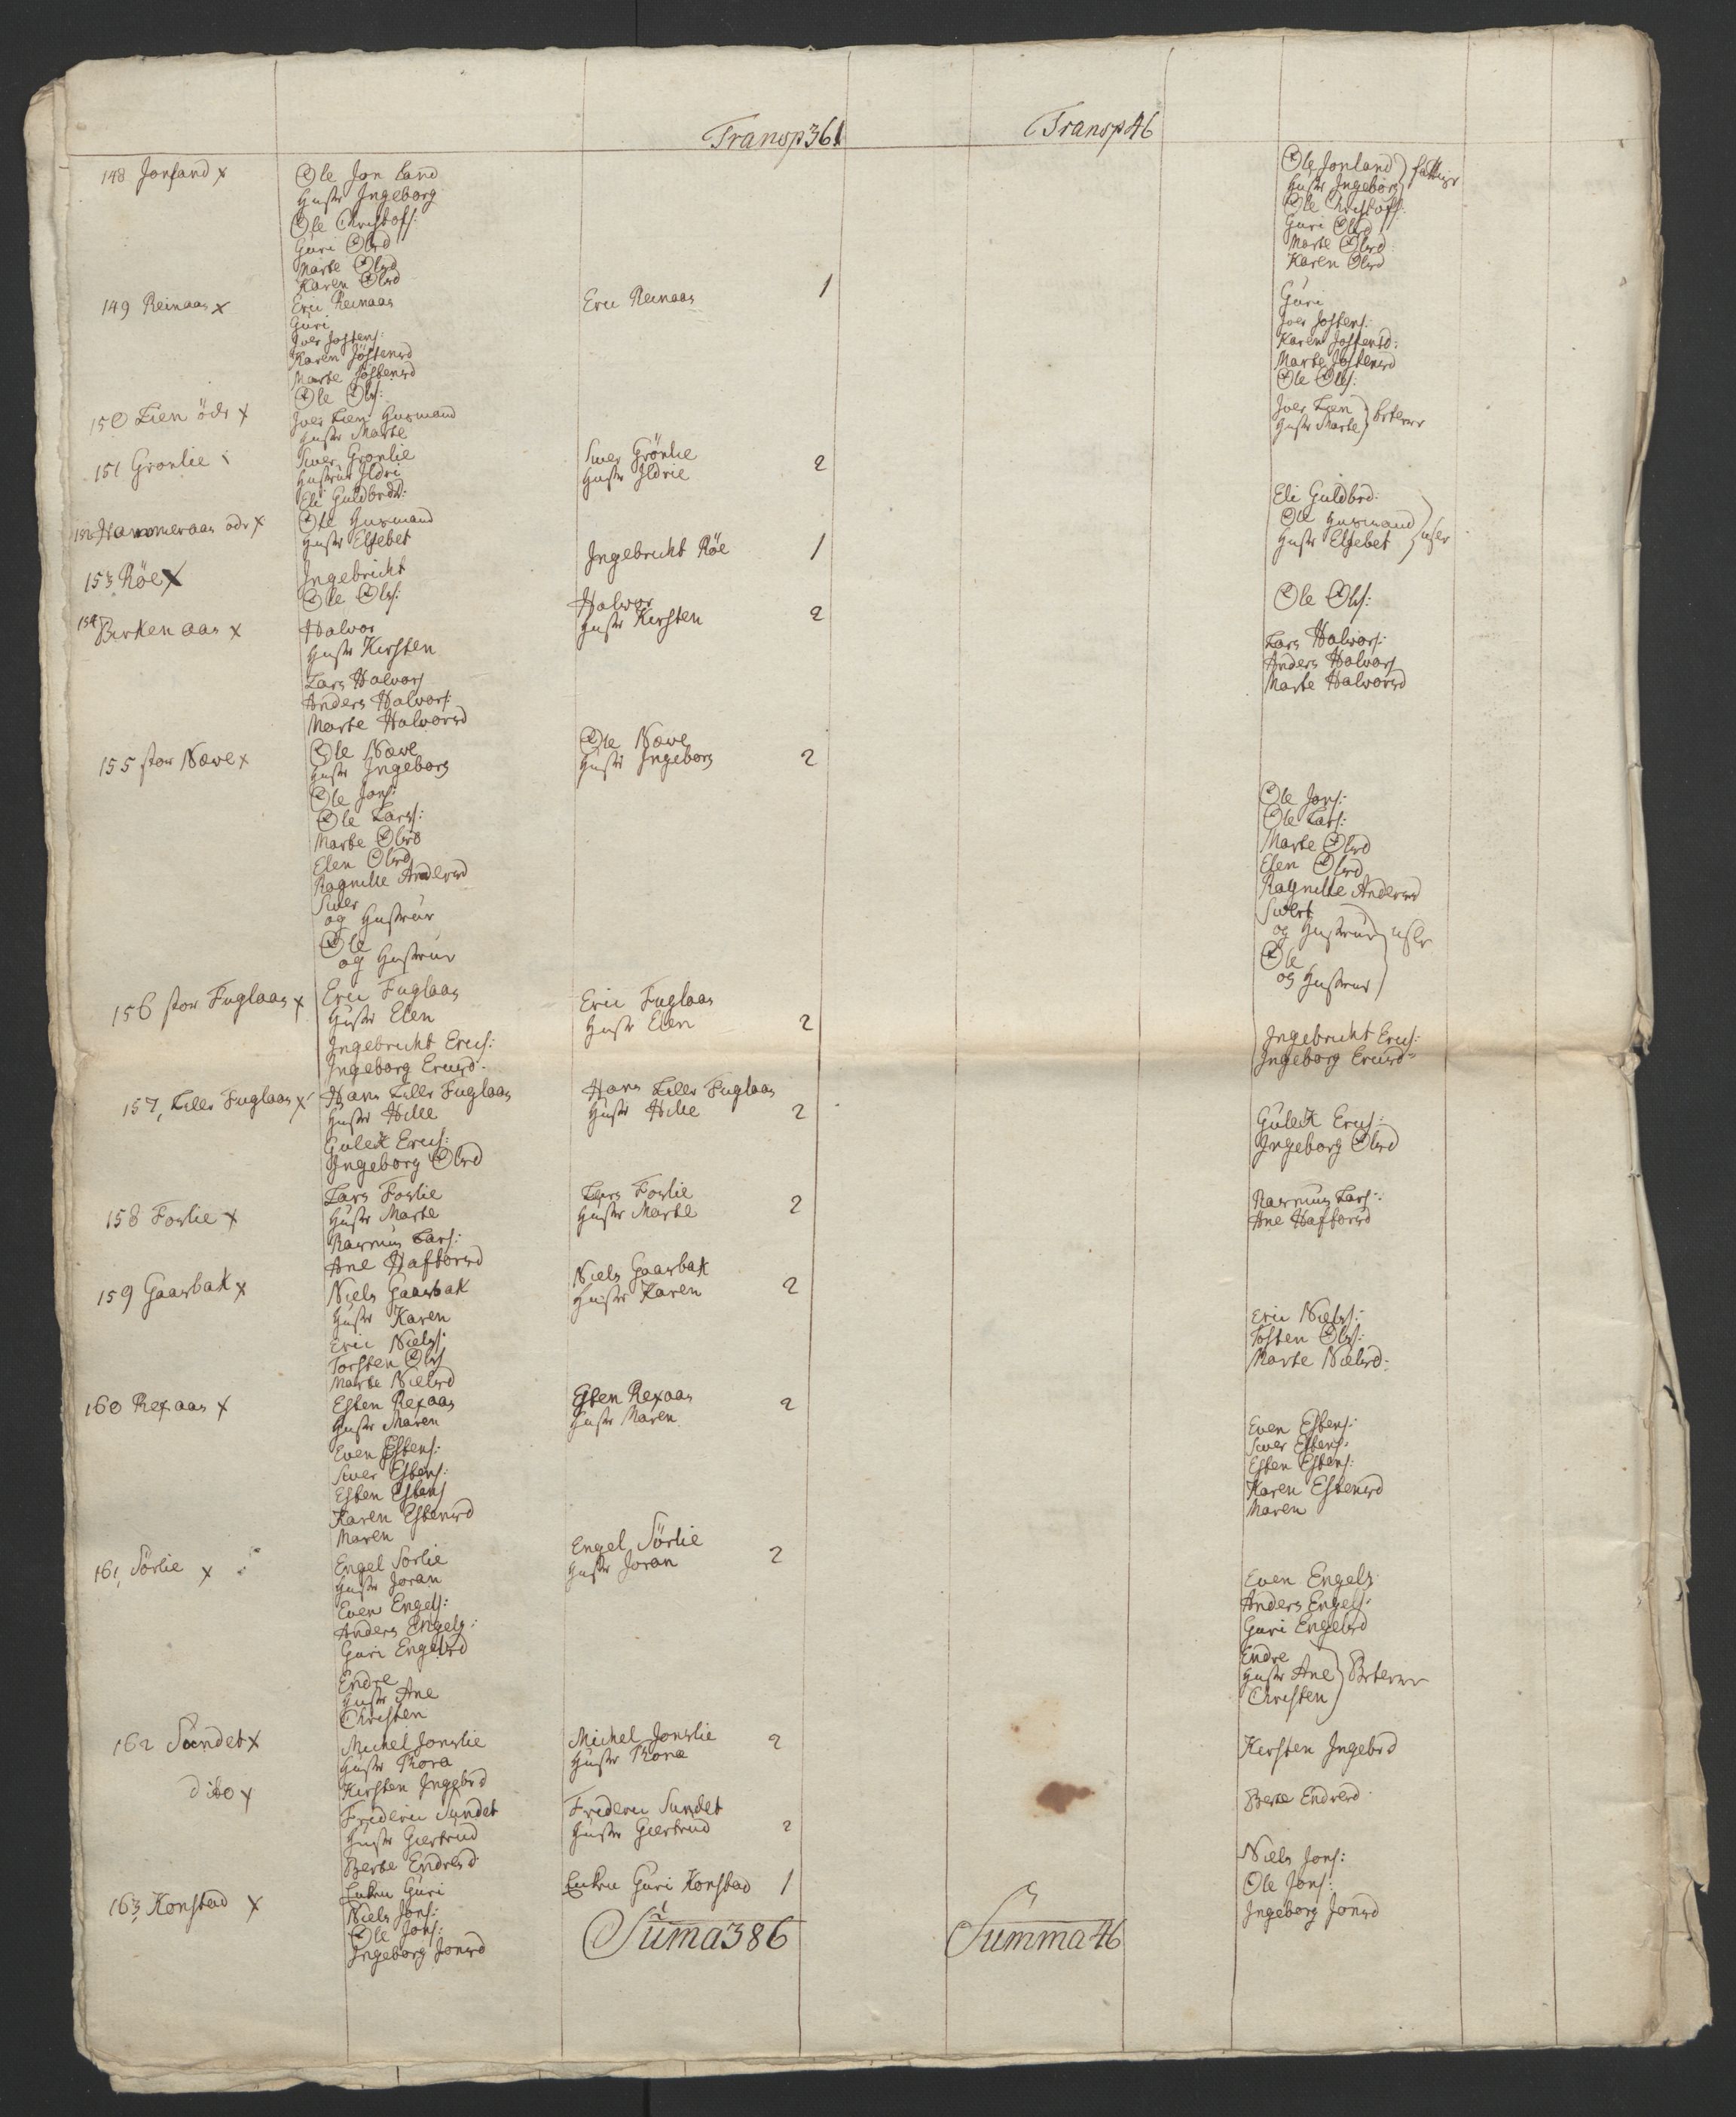 Transp 361 Transp 46
148 Jonsand x
Ole Jon land
Hustr Ingeborg
Ole Christofs:
Guri Olsd
Marte Olsd
Karen Olsd
Ole Jonland
Hustr Ingeborg
Ole Christofs:
Guri Olsd
Marte Olsd
Karen Olsd
149 Reinaas x
Eric Reinaas
Guri
Iver Jostens:
Karen Jöstensd
Marte Jöstensd
Ole Ols:
Eric Reinaas 1
Guri
Iver Jostens:
Karen Jostensd:
Marte Jostensd
Ole Ols:
150 Lien öde x
Iver Lien Husmand
Hustr Marte
Iver Lien
Hustr Marte
151 Gronlie
Siver Gronlie
Hustrue Ildri
Eli Guldbrdd:
Siver Grönlie
Hustr Ildrie 2
Eli Guldbrd:
152 Hammeraas öde x
Ole Husmand
Hustr Elsebet
Ole Husmand
Hustr Elsebet
153 Röe x
Ingebricht
Ole Ols:
Ingebricht Röe 1
Ole Ols:
154 Birkenaas x
Halvor
Hustr Kirsten
Lars Halvors
Anders Halvors:
Marte Halvorsd
Halvor
Hustr Kirsten 2
Lars Halvors:
Anders Halvors
Marte Halvorsd
155 stor Næve x
Ole Næve
Hustr Ingeborg
Ole Jons:
Ole Lars:
Marte Olsd
Elen Olsd
Ragnille Andersd
Siver
og Hustrue
Ole
og Hustrue
Ole Næve
Hustr Ingeborg 2
Ole Jons:
Ole Lars:
Marte Olsd
Elen Olsd
Ragnille Andersd
Sivert
og Hustrue
Ole
og Hustrue
156 stor Fuglaas x
Eric Fuglaas
Hustr Elen
Ingebricht Erics:
Ingeborg Ericsd:
Eric Fuglaas
Hustr Elen 2
Ingebricht Erics:
Ingeborg Ericsd
157, Lille Fuglaas x
Hans Lille Fuglaas
Hustr Hille
Gulek Erics:
Ingeborg Olsd
Hans Lille Fuglaas
Hustr Hille 2
Gulek Erics:
Ingeborg Olsd
158 Foslie x
Lars Foslie
Hustr Marte
Rasmus Lars:
Ane Haftorsd
Lars Foslie
Hustr Marte 2
Rasmus Lars:
Ane Haftorsd
159 Gaasbak x
Niels Gaasbak
Hustr Karen
Eric Niels:
Torsten Ols
Marte Nielsd
Niels Gaasbak
Hustr Karen 2
Eric Niels:
Tosten Ols:
Marte Nielsd:
160 Rexaas x
Esten Rexaas
Hustr Maren
Even Estens:
Siver Estens:
Esten Estens
Karen Estensd
Maren
Esten Rexaas
Hustr Maren 2
Even Estens:
Siver Estens:
Esten Estens:
Karen Estensd
Maren
161, Sörlie x
Engel Sorlie
Hustr Joran
Even Engels:
Anders Engels:
Guri Engelsd
Endre
Hustr Ane
Christen
Engel Sörlie
Hustr Joran 2
Even Engels
Anders Engels:
Guri Engelsd
Endre
Hustr Ane
Christen
162 Sundet x
Michel Jonslie
Hustr Thora
Kirsten Ingebrd
Michel Jonslie
Hustr Thora 2
Kirsten Ingebrd
dito x
Frideric Sundet
Hustr Giertrud
Berte Endresd
Frideric Sundet
Hustr Giertrud 2
Berte Endresd
163 Konstad x
Enken Guri
Niels Jons:
Ole Jons:
Ingeborg Jonsd
Enken Guri Konstad 1
Niels Jons:
Ole Jons:
Ingeborg Jonsd
Suma 386 Summa 46